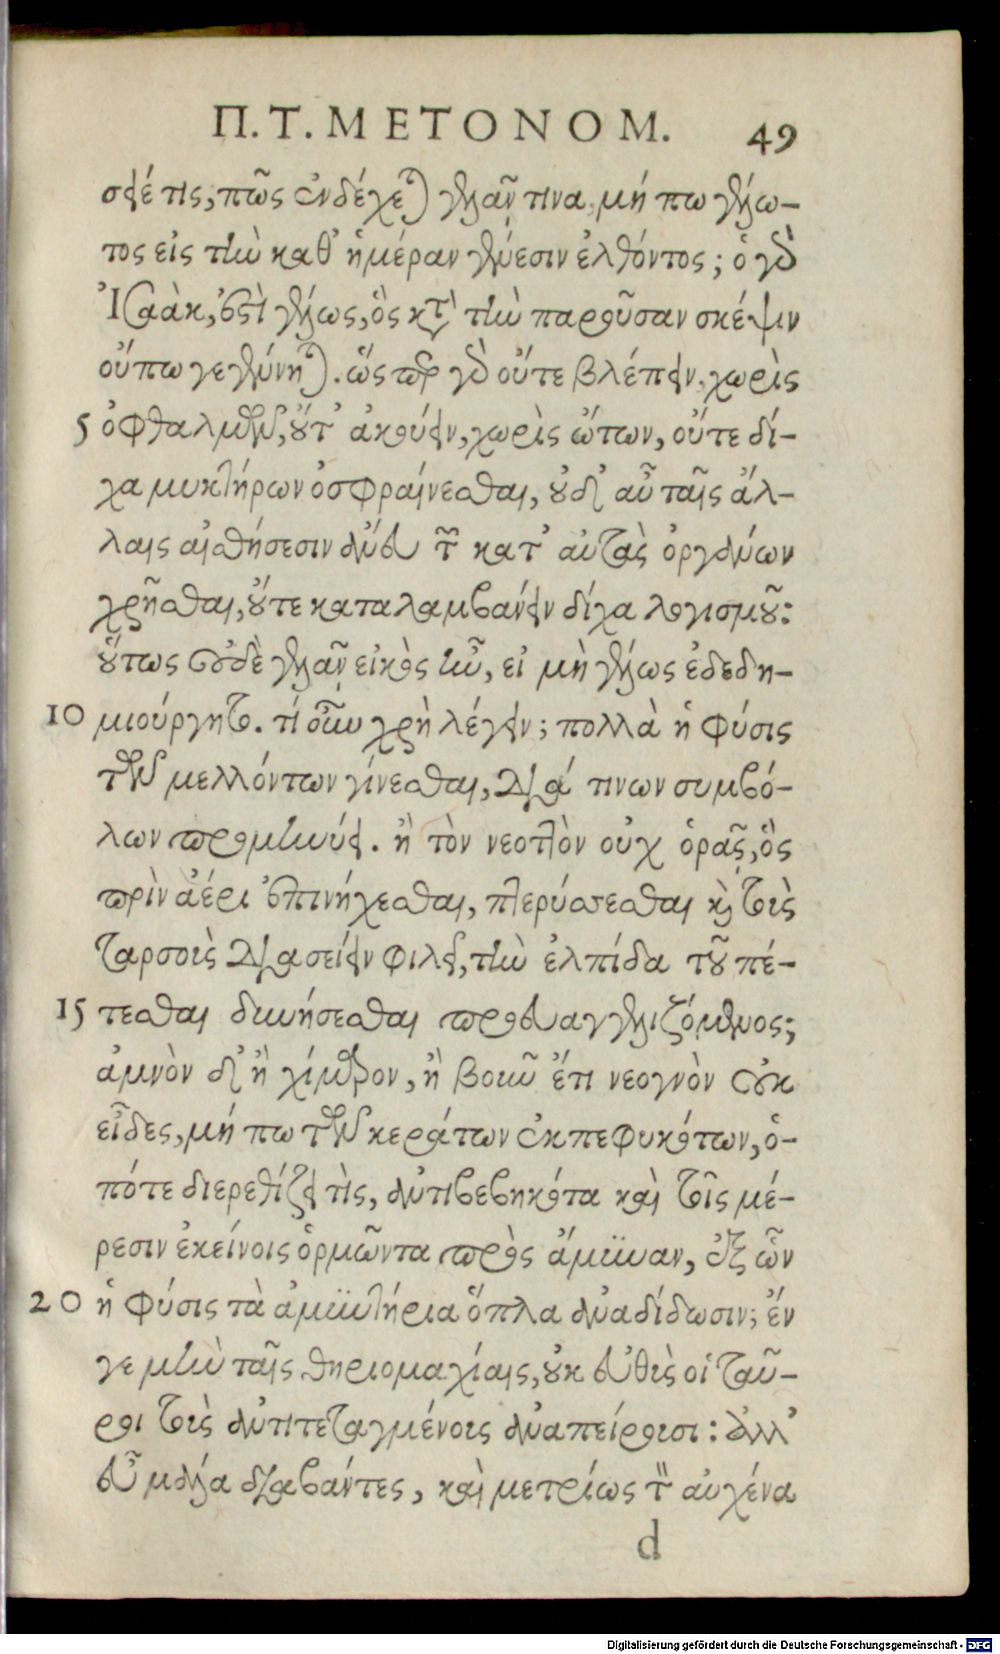 Π. Τ. ΜΕΤΟΝΟΜ. 49
σειέ τις, πῶς ἐνδέχεται γελᾶν τινα, μή πω γέλω-
τος εἰς τὴν καθ' ἡμέραν γένεσιν ἐλθόντος; ὁ γὸ
Ἰσαὰκ, ἐστὶ γέλως, ὃς κατὰ τὴν παροῦσαν σκέψιν
οὔπω γεγένηται. ὥσπερ γὸ οὔτε βλέπειν, χωρὶς
5 ὀφθαλμῶν, οὔτ' ἀκούειν, χωρὶς ὤτων, οὔτε δί-
χα μυκτήρων ὀσφραίνεσθαι, οὐδ' αὖ ταῖς ἄλ-
λαις αἰσθήσεσιν ἄνευ τῶν κατ' αὐτὰς ὀργάνων
χρῆσθαι, οὔτε καταλαμβάνειν δίχα λογισμοῦ:
οὕτως οὐδὲ γελᾶν εἰκὸς ἦν, εἰ μὴ γέλως ἐδεδη-
10 μιούργητο. τί οὖν χρὴ λέγειν; πολλὰ ἡ φύσις
τῶν μελλόντων γίνεσθαι, διά τινων συμβό-
λων προμηνύει. ἢ τὸν νεοττὸν οὐχ ὁρᾷς, ὃς
πρὶν ἀέρι ἐπινήχεσθαι, πτερύσσεσθαι καὶ τοὺς
ταρσοὺς διασείειν φιλεῖ, τὴν ἐλπίδα τοῦ πέ-
15 τεσθαι δυνήσεσθαι προευαγγελιζόμενος;
ἀμνὸν δ' ἢ χίμαρον, ἢ βοῦν ἔτι νεογνὸν οὐκ
εἶδες, μή πω τῶν κεράτων ἐκπεφυκότων, ὁ-
πότε διερεθίζει τὶς, ἀντιβεβηκότα καὶ τοῖς μέ-
ρεσιν ἐκείνοις ὁρμῶντα πρὸς ἄμυναν, ἐξ ὧν
20 ἡ φύσις τὰ ἀμυντήρια ὅπλα ἀναδίδωσιν; ἔν
γε μὴν ταῖς θηριομαχίαις, οὐκ εὐθὺς οἱ ταῦ-
ροι τοὺς ἀντιτεταγμένους ἀναπείρουσι: ἀλλ'
εὖ μάλα διαβάντες, καὶ μετρίως τὸν αὐχένα
d
Digitalisierung gefördert durch die Deutsche Forschungsgemeinschaft - DFG